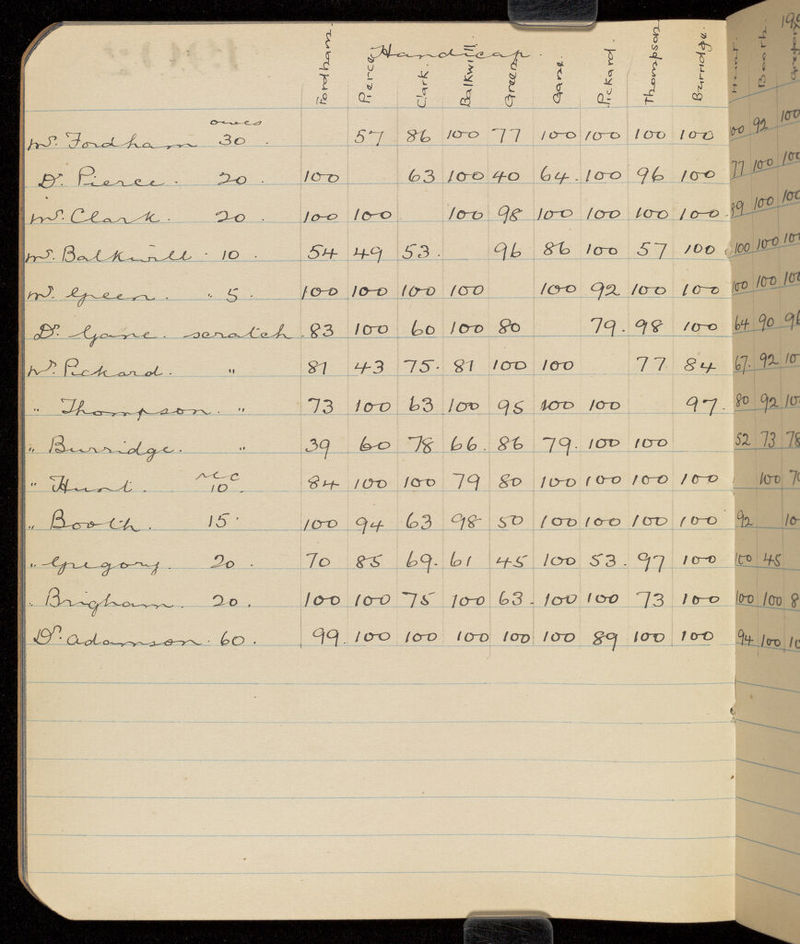 Handicap.
Fordham. Pierce Clark. Balkwill. Green Gane. Pickard. Thompson Burridge. Hunt. Booth.
owes
Mr. Fordham 30. 57 86 100 77 100 100 100 100 100 92 100
Dr. Pierce. 20. 100 63 100 40 64. 100 96 100 77 100 100
Mr. Clark. 20. 100 100 100 98 100 100 100 100. 89 100 100
Mr. Balkwill. 10. 54 49 53. 96 86 100 57 100 100 100 100
Mr. Green. " 5. 100 100 100 100 100 92 100 100 100 100 100
Dr. Gane. scratch. 83 100 60 100 80 79. 98 100 64 90 96
Mr. Pickard. " 81 43 75. 81 100 100 77 84 67. 92 10
" Thompson. " 73 100 63 100 95 100 100 97. 80 92 10
" Burridge. " 39 60 78 66. 86 79. 100 100 52 73 78
" Hunt. rec 10. 84 100 100 79 80 100 100 100 100 100 7
" Booth. 15. 100 94 63 98 50 100 100 100 100 92 10
" Gregory. 20. 70 85 69. 61 45 100 53. 97 100 100 45
" Brigham. 20. 100 100 75 100 63. 100 100 73 100 100 100 8
Dr. Adamson. 60. 99. 100 100 100 100 100 89 100 100 94 100 10